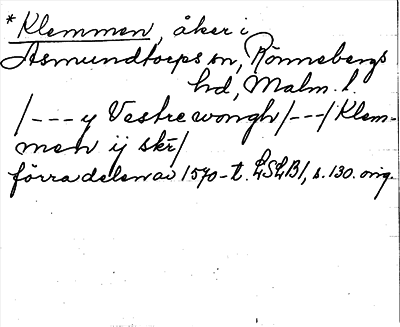 *Klemmen, åker i
Asmundtorps sn, Rönnebergs
hd, Malm. l.
/--- y Vestre wongh/---/Klem-
men ij skr/
förra delen av 1570-t. LSLB1, s. 130. orig.